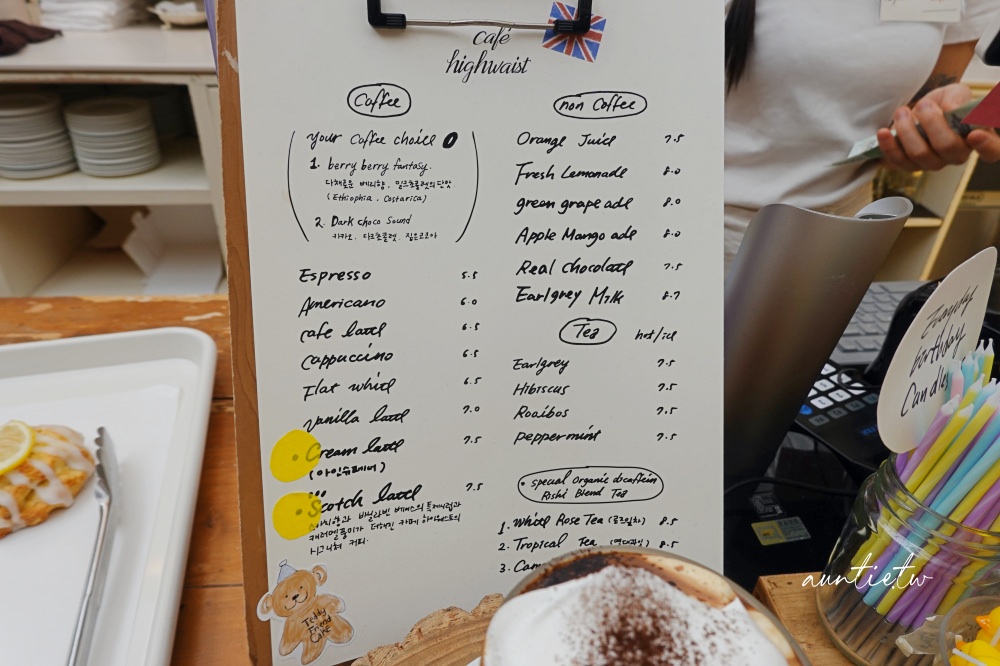 café
highwaist
Coffee
your coffee choice
1. berry berry fantasy.
다채로운 베리향, 밀크초콜렛의 단맛
(Ethiophia, Costarica)
2. Dark choco Sound
카카오, 다크초콜렛, 짙은고소미
Espresso 5.5
Americano 6.0
cafe latte 6.5
cappuccino 6.5
Flat white 6.5
vanilla latte 7.0
Cream latte 7.5
(아인슈페너)
Scotch latte 7.5
스카치향과 바닐라빈 베이스의 특제시럽과
캐러멜풍미가 더해진 카페 하이웨스트의
시그니처 커피.
Teddy
Friend
Cake
non Coffee
Orange Juice 7.5
Fresh Lemonade 8.0
green grape ade 8.0
Apple Mango ade 8.0
Real chocolate 7.5
Earlgrey Milk 8.7
Tea hot/ice
Earlgrey 7.5
Hibiscus 7.5
Rooibos 7.5
peppermint 7.5
• special Organic decaffein
Rishi Blend Tea
1. White Rose Tea (로즈잎차) 8.5
2. Tropical Tea 8.5
3. Cam
birthday
Candles
auntie.tw